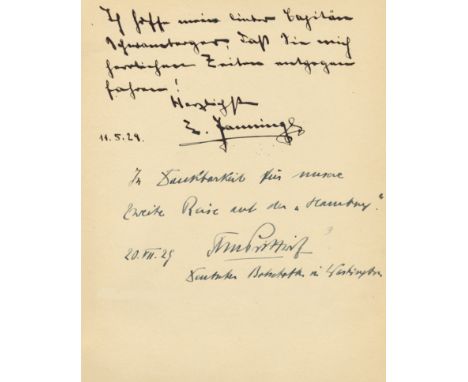 Ich hoffe mein lieber Capitän
Schwamberger, daß Sie mich
herrlichen Zeiten entgegen
fahren!
Herzlichst
E. Jannings
11.5.29.
In Dankbarkeit für unsere
zweite Reise auf der „Hamburg“.
20.VII.29
Deutscher Botschafter in Washington